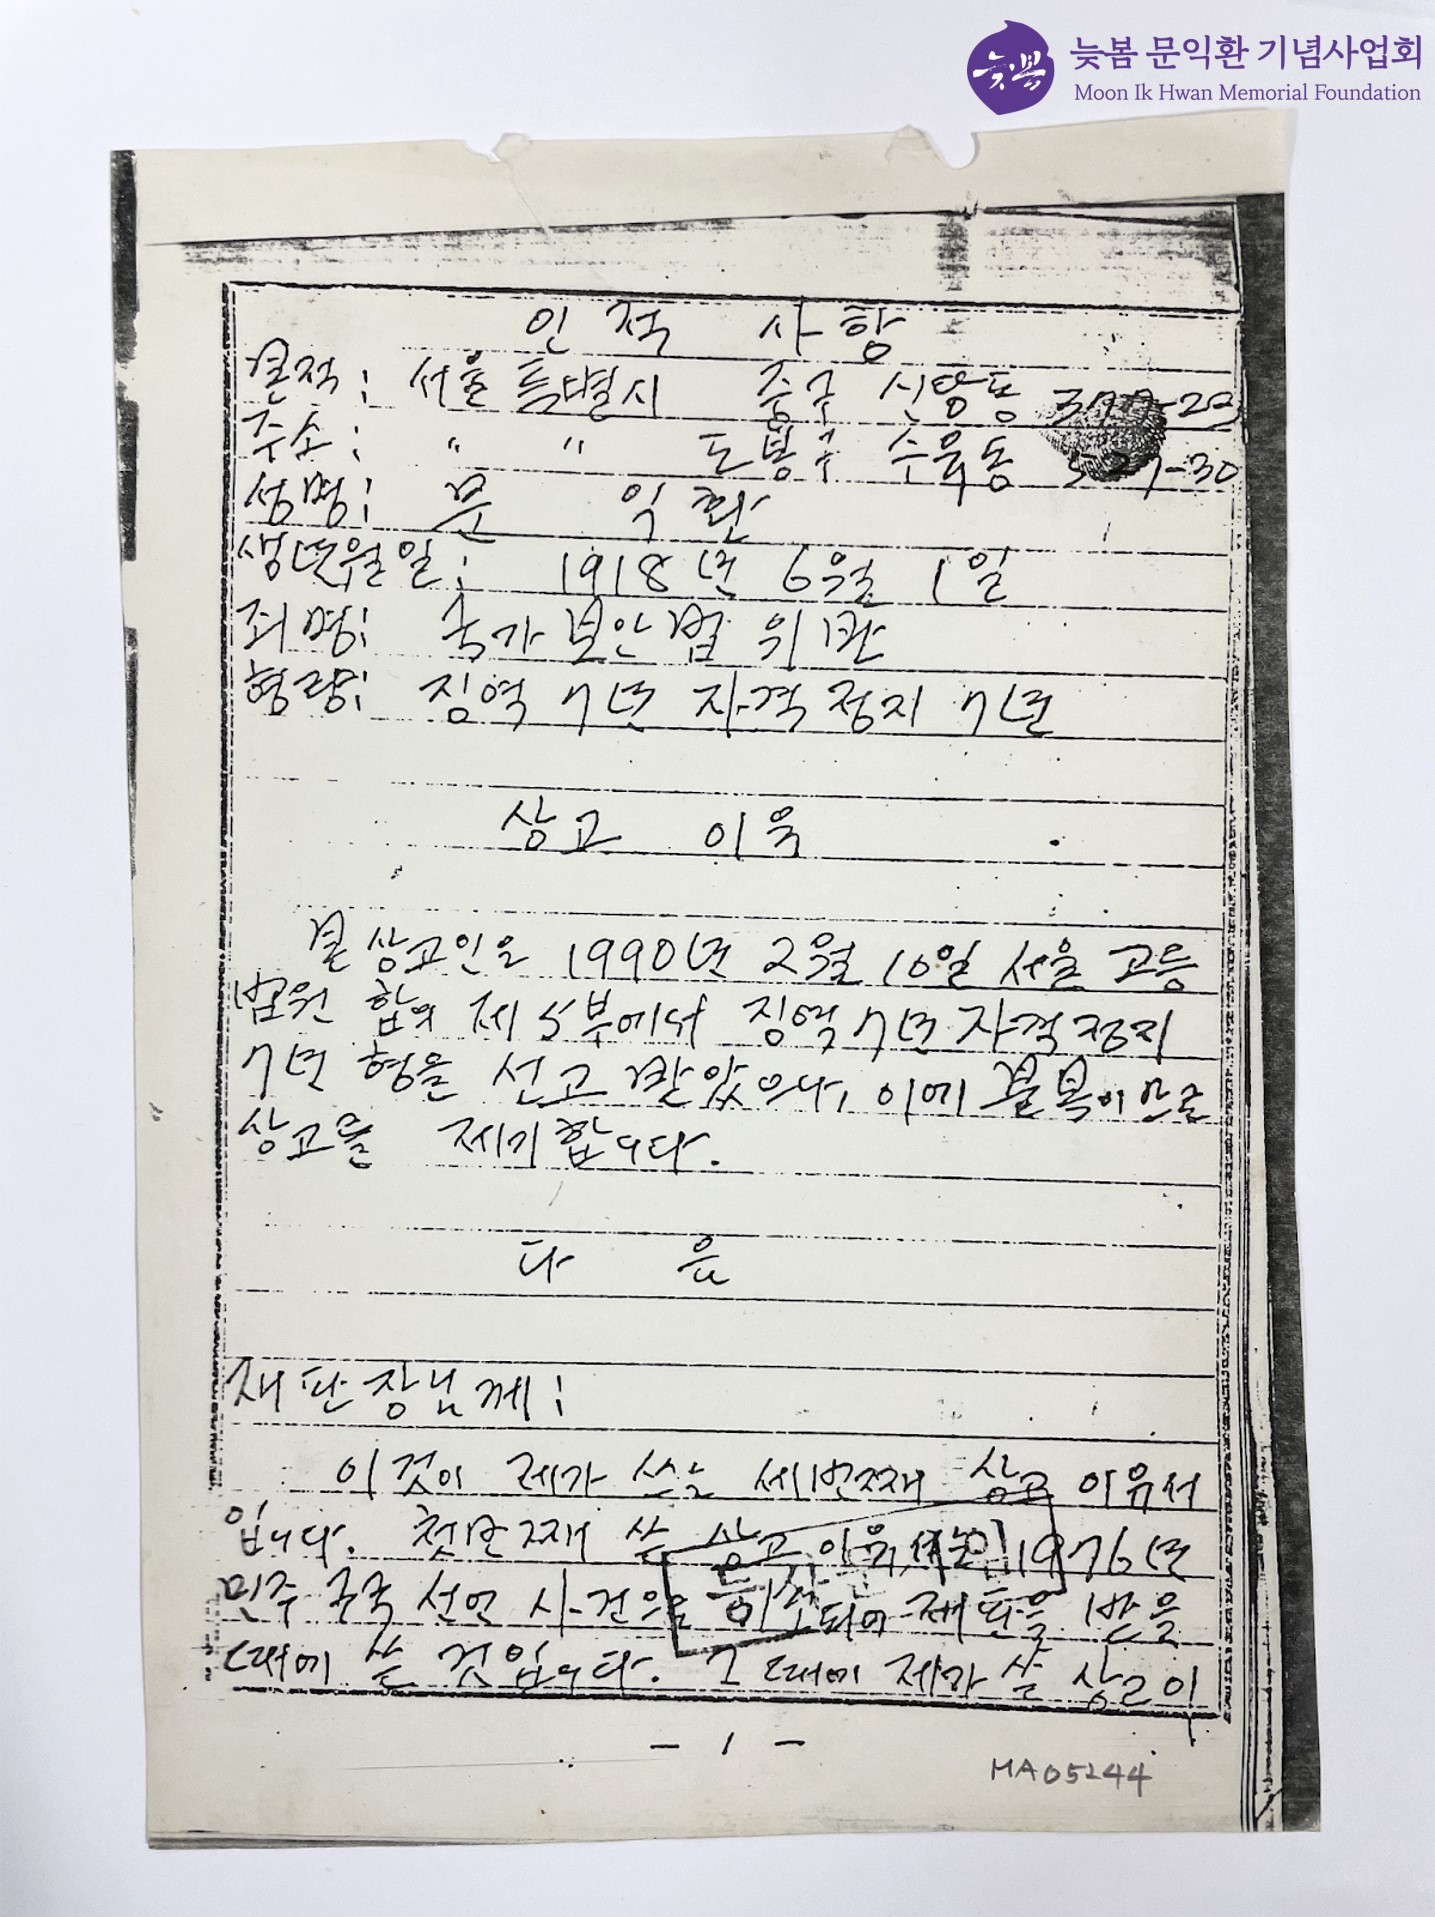 늦봄 문익환 기념사업회
Moon Ik Hwan Memorial Foundation
늦봄
인적 사항
본적: 서울특별시 중구 신당동 377-23
주소: 〃 〃 도봉구 수유동 527-30
성명: 문 익환
생년월일: 1918년 6월 1일
죄명: 국가보안법 위반
형량: 징역 7년 자격정지 7년
상고 이유
본 상고인은 1990년 2월 10일 서울 고등
법원 합의 제5부에서 징역 7년 자격정지
7년 형을 선고 받았으나, 이에 불복이므로
상고를 제기합니다.
다 음
재판장님께:
이것이 제가 쓰는 세번째 상고 이유서
입니다. 첫번째 쓴 상고 이유서는 1976년
민주 구국 선언 사건으로 기소되어 재판을 받을
때에 쓴 것입니다. 그 때에 제가 쓴 상고이
- 1 -
MA05244